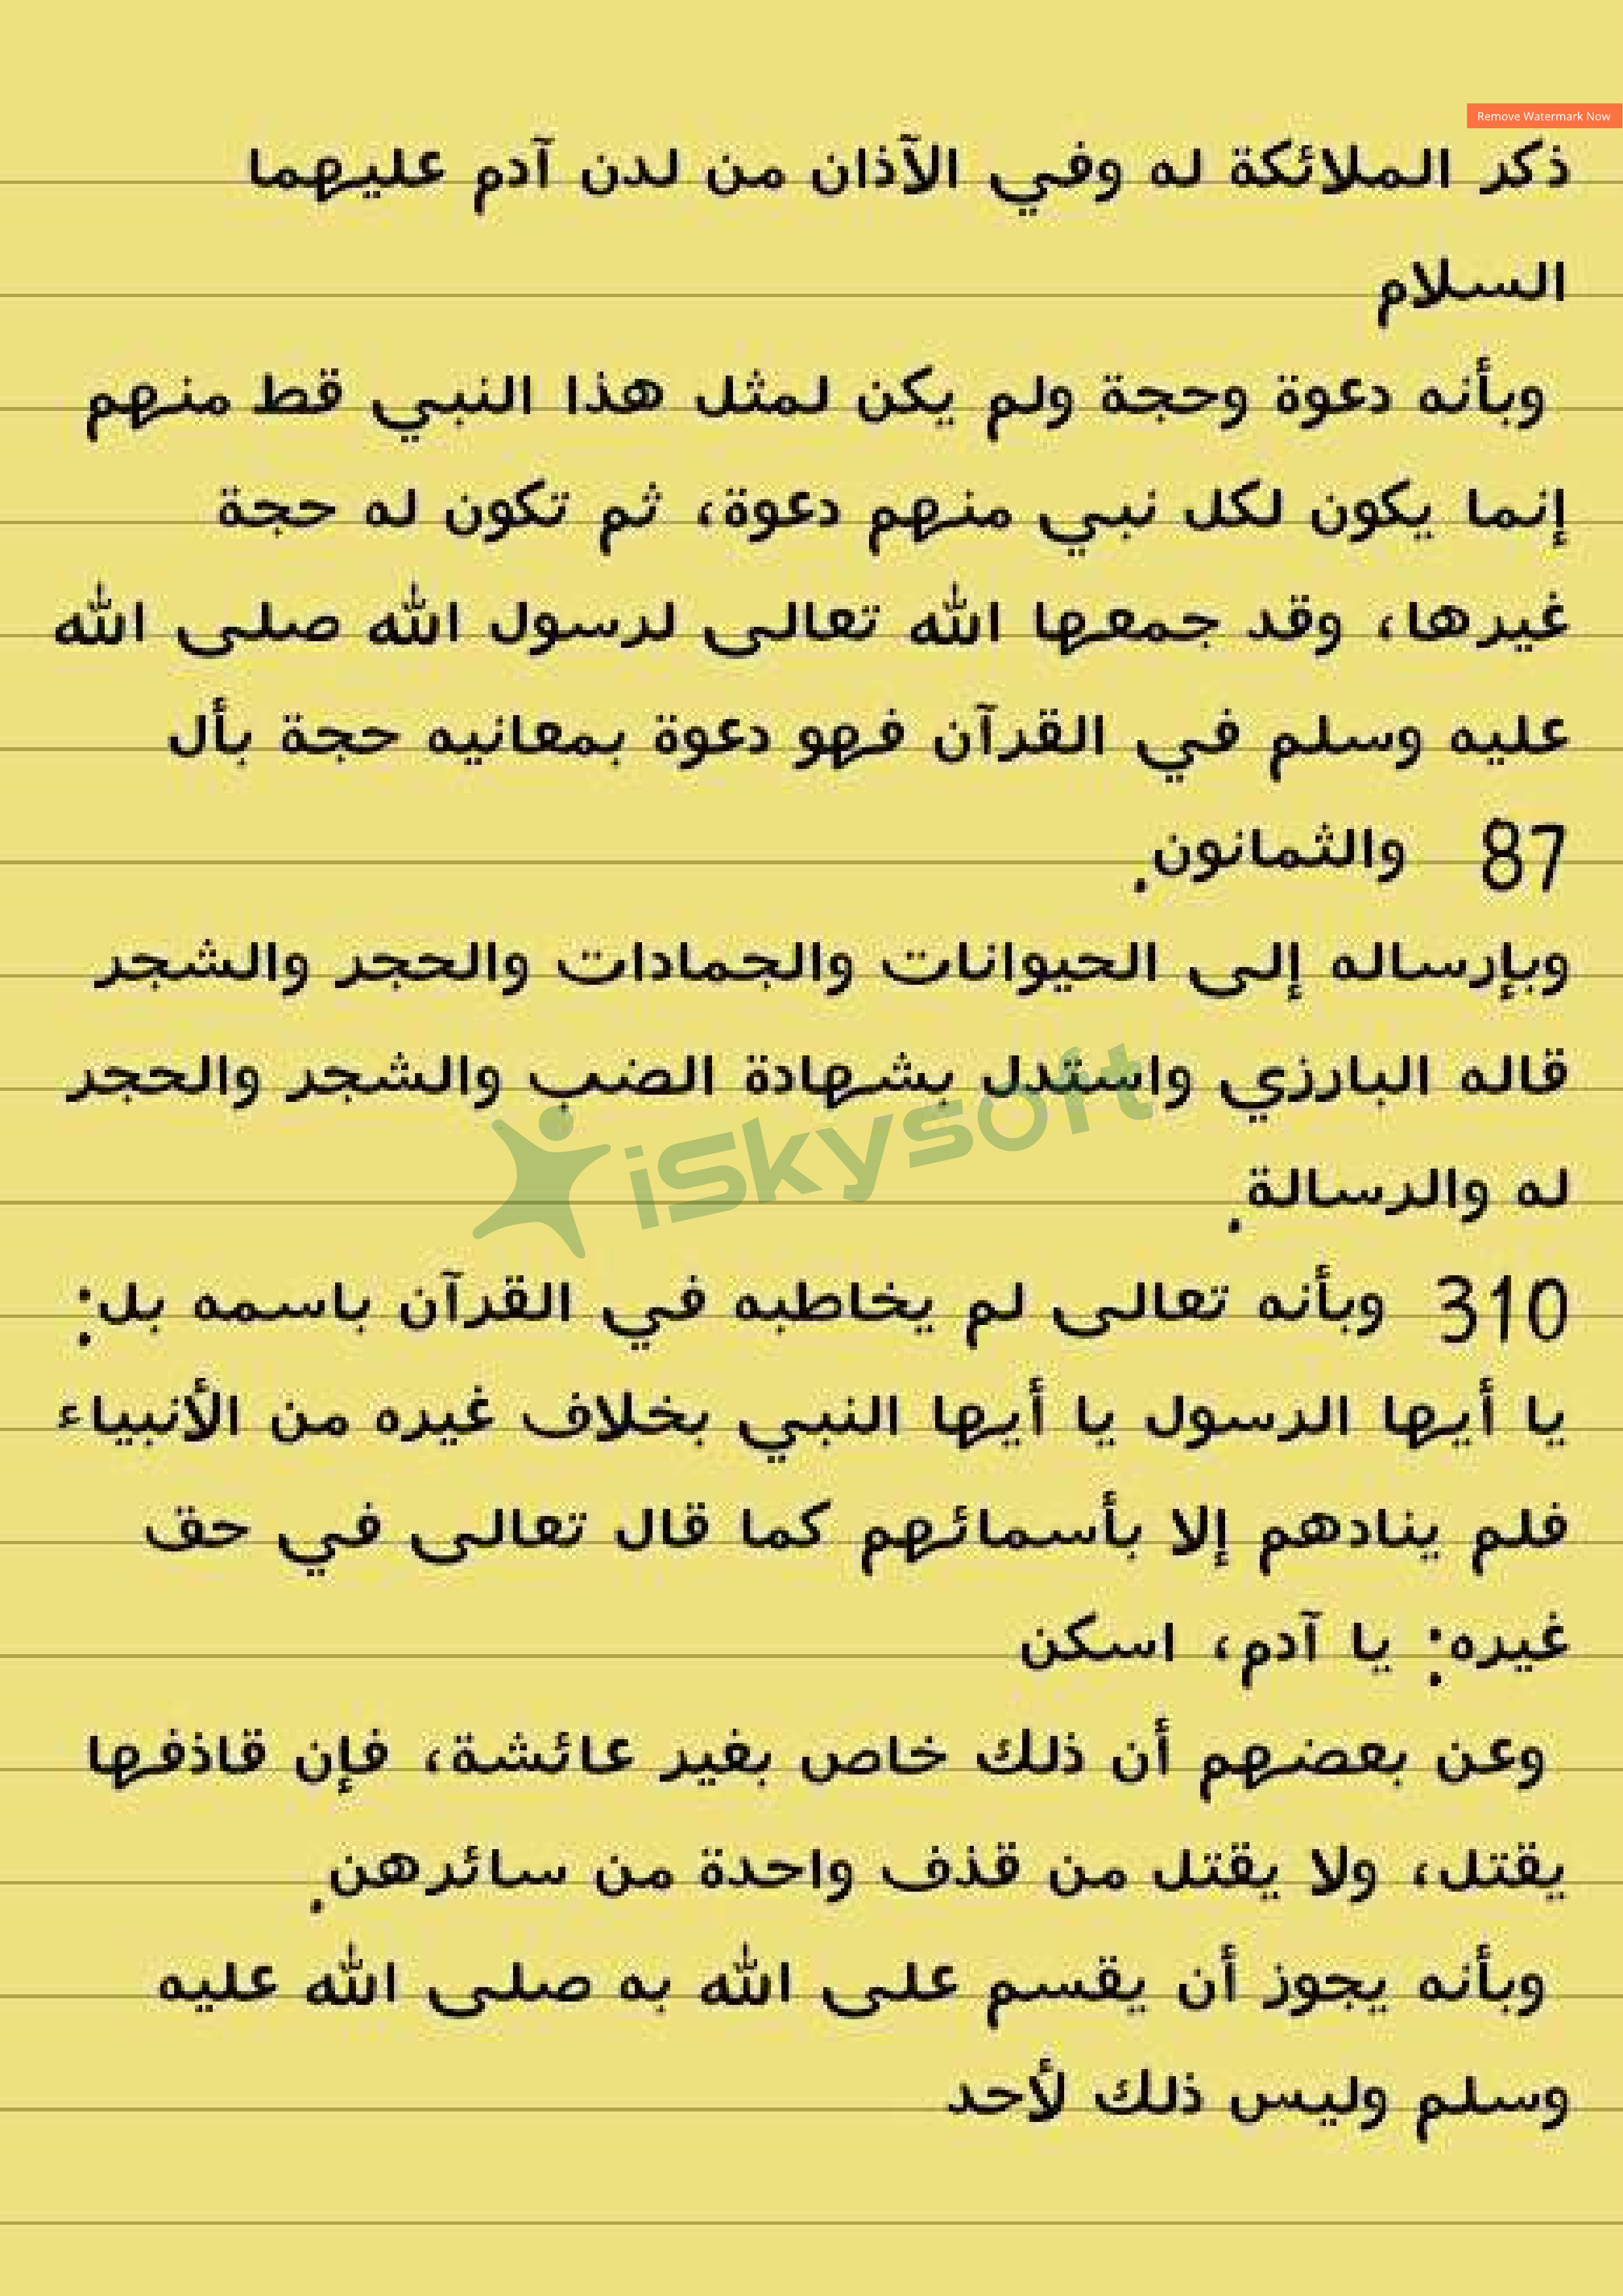 Remove Watermark Now
ذكر الملائكة له وفي الآذان من لدن آدم عليهما
السلام
وبأنه دعوة وحجة ولم يكن لمثل هذا النبي قط منهم
إنما يكون لكل نبي منهم دعوة، ثم تكون له حجة
غيرها، وقد جمعها الله تعالى لرسول الله صلى الله
عليه وسلم في القرآن فهو دعوة بمعانيه حجة بأل
87 والثمانون.
وبإرساله إلى الحيوانات والجمادات والحجر والشجر
قاله البارزي واستدل بشهادة الضب والشجر والحجر
له والرسالة.
iSkysoft
310 وبأنه تعالى لم يخاطبه في القرآن باسمه بل:
يا أيها الرسول يا أيها النبي بخلاف غيره من الأنبياء
فلم ينادهم إلا بأسمائهم كما قال تعالى في حق
غيره: يا آدم، اسكن
وعن بعضهم أن ذلك خاص بغير عائشة، فإن قاذفها
يقتل، ولا يقتل من قذف واحدة من سائرهن.
وبأنه يجوز أن يقسم على الله به صلى الله عليه
وسلم وليس ذلك لأحد